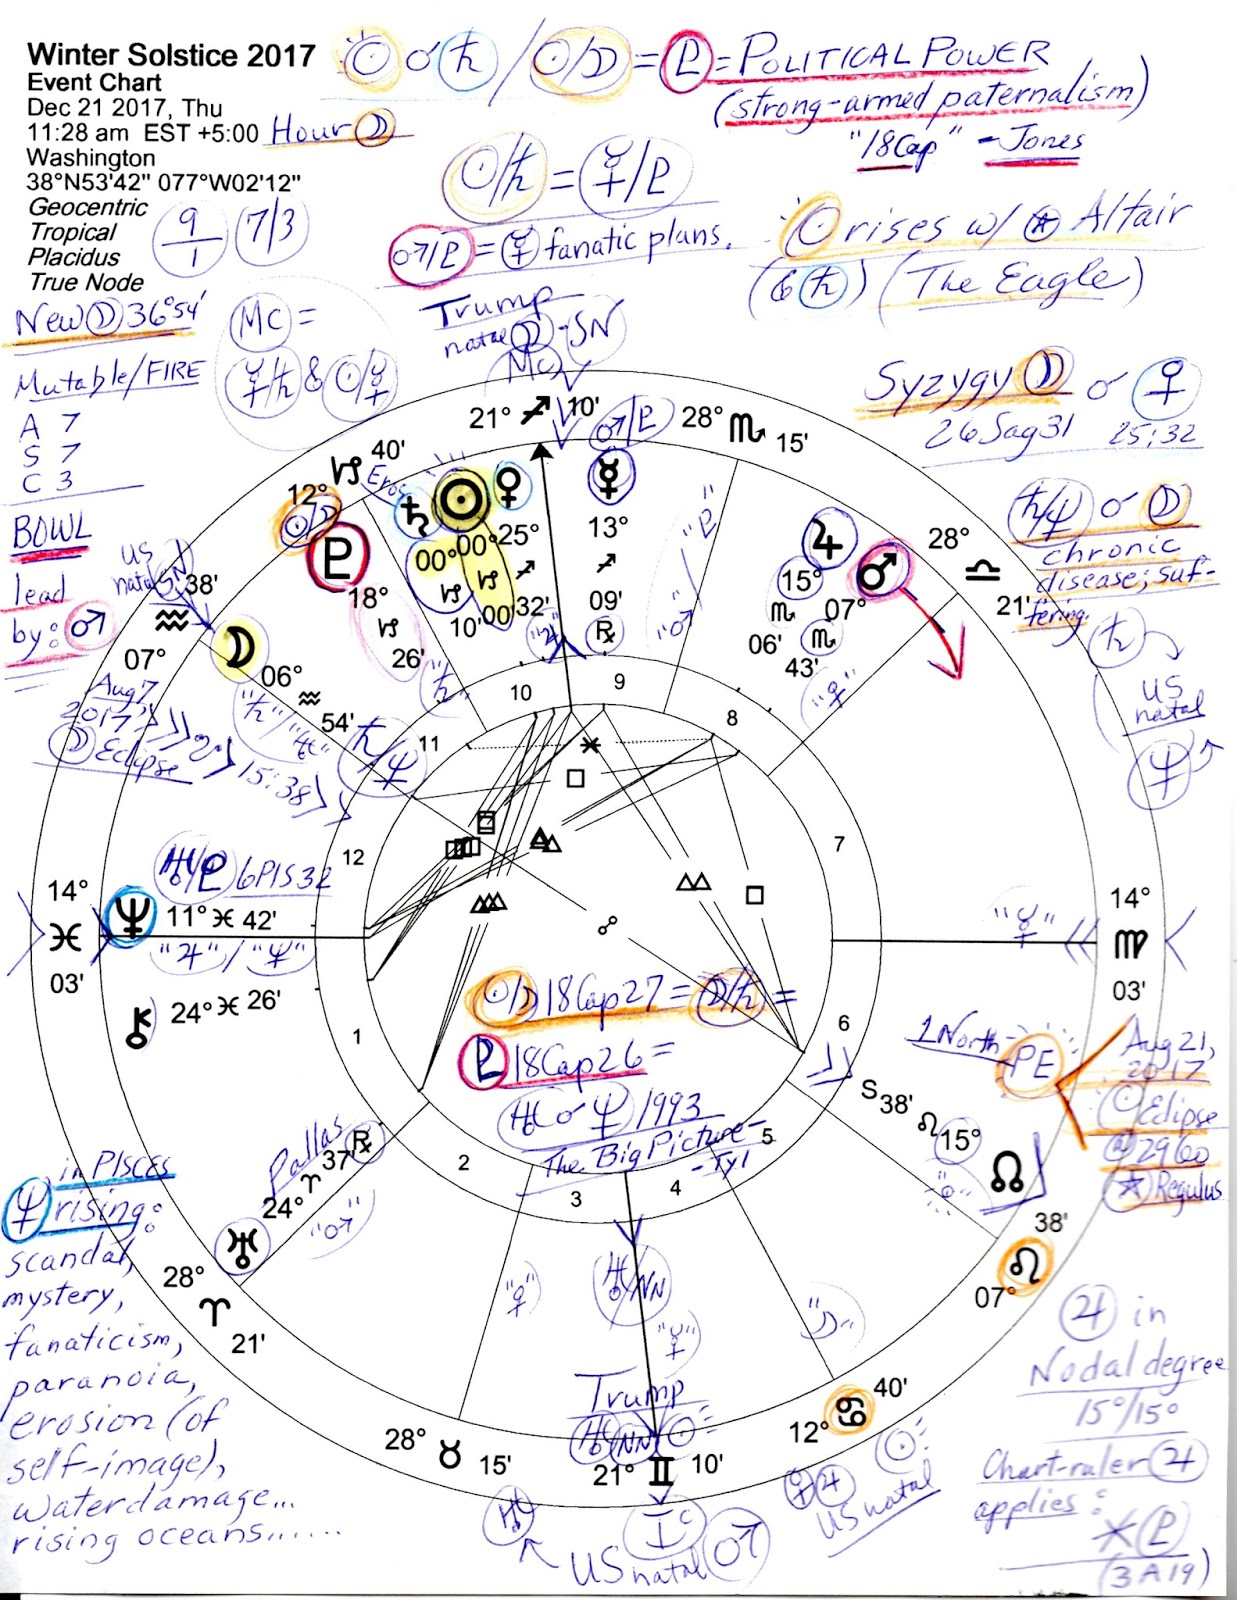 Winter Solstice 2017
Event Chart
Dec 21 2017, Thu
11:28 am EST +5:00 Hour ☽
Washington
38°N53'42" 077°W02'12"
Geocentric
Tropical
Placidus
True Node
9/1 7/3
☉ ☌ ♄ / ☉/☽ = ♇ = POLITICAL POWER
(strong-armed paternalism)
"18Cap" - Jones
☉/♄ = ☿/♇
♂/♇ = ☿ fanatic plans.
☉ rises w/ ☆ Altair
(☌ ♄) (The Eagle)
New ☽ 36°54'
Mutable/FIRE
A 7
S 7
C 3
BOWL
lead
by: ♂
MC =
☿/♄ & ☉/☿
Trump
natal ☽-SN
Mc
Syzygy ☽ ☌ ♀
26Sag31 25:32
♄/♆ ☌ ☽
chronic
disease; suf-
fering.
♄
US
natal
♆
21° ♐ 10'
28° ♏ 15'
28° ♎ 21'
14° ♍ 03'
07° ♌ 38'
12° ♋ 40'
21° ♊ 10'
28° ♉ 15'
28° ♈ 21'
14° ♓ 03'
07° ♒ 38'
12° ♑ 40'
☉/☽
Eros
♂/♇
US
natal SN
♇ 18° ♑ 26'
♄ 00° ♑ 10'
☉ 00° ♑ 00'
♀ 25° ♐ 32'
☿ 13° ♐ 09' ℞
♃ 15° ♏ 06'
♂ 07° ♏ 43'
☽ 06° ♒ 54'
"♄"
"♃"
"♂" \ "♇"
"♀"
"♄"/"♅"
♄/♆
Aug 7
2017
☽ Eclipse
15:38
♅/♇ 6PIS32
♆ 11° ♓ 42'
"♃"/"♆"
⚷ 24° ♓ 26'
"☿"
10 9 8 11 7 12 6 1 5 2 3 4
☉/☽ 18Cap27 = ☽/♄ =
♇ 18Cap26 =
♅ ☌ ♆ 1993
The Big Picture-
-Tyl
1North-PE
Aug 21,
2017
☉ Eclipse
@ 29 Leo
☆ Regulus
S 38' ♌ 15° ☊
"☉"
Pallas
♅ 24° ♈ 37' ℞
"♂"
in PISCES
♆ rising:
scandal,
mystery,
fanaticism,
paranoia,
erosion (of
self-image),
water damage...
rising oceans......
"♀"
♅/NN
"☿"
"☽"
Trump
♅ NN ☉
♅
Ic
US natal ♂
♀ ♃ ☉
US natal
♃ in
Nodal degree
15°/15°
Chart-ruler ♃
applies:
⚹ ♇
(3A19)